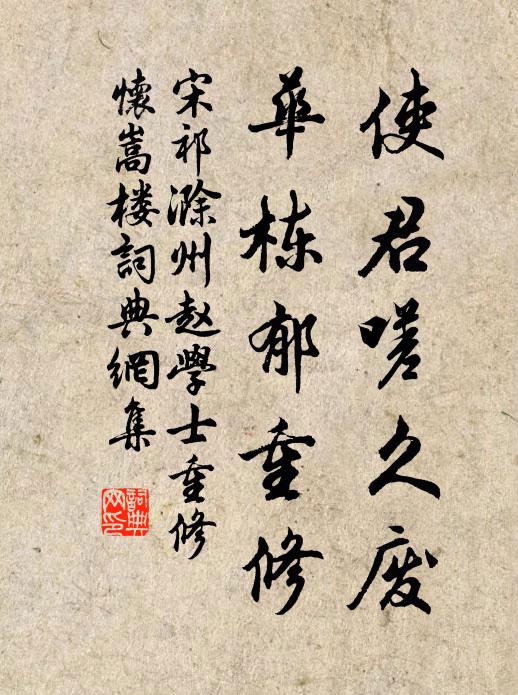 使君嗟久废
華栋郁重修
宋祁滁州赵學士重修
懷嵩楼詞典網集
詞典网印